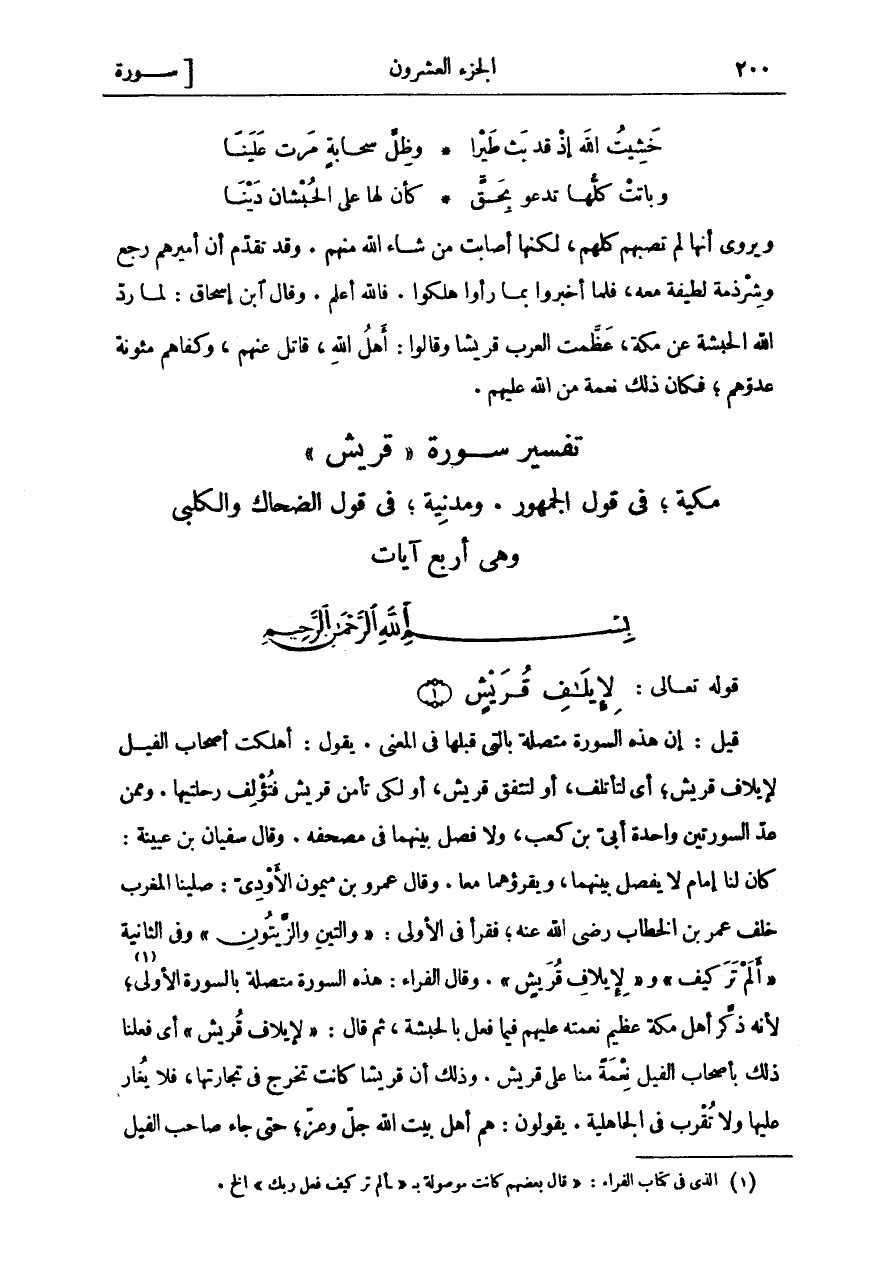 ٢٠٠ الجزء العشرون [ ســـورة
خَشِيتُ الله إذْ قد بَث طَيْرا * وظِلَّ سحـابةٍ مَرت عَلَينَا
وباتتْ كلُّهـا تدعو بِحَـقَّ * كأن لها على الحُبْشان دَيْنَا
ويروى أنها لم تصبهم كلهم، لكنها أصابت من شـاء الله منهم . وقد تقدّم أن أميرهم رجع
وشِرْذمة لطيفة معه، فلما أخبروا بمـا رأوا هلكوا . فالله أعلم . وقال ٱبن إسحاق : لمـا ردّ
الله الحبشة عن مكة، عَظَّمت العرب قريشا وقالوا : أَهلُ اللهِ ، قاتل عنهم ، وكفاهم مئونة
عدوّهم ؛ فكان ذلك نعمة من الله عليهم .
تفسير ســـورة « قريش »
مكية ؛ فى قول الجمهور . ومدنِية ؛ فى قول الضحاك والكلبى
وهى أربع آيات
بِسْـــــمِ ٱللَّهِ ٱلرَّحْمَٰنِ ٱلرَّحِيمِ
قوله تعـالى : لِإِيلَـٰفِ قُـرَيْشٍ ١
قيل : إن هذه السورة متصلة بالتى قبلها فى المعنى . يقول : أهلكت أصحاب الفيـل
لإيلاف قريش؛ أى لتأتلف، أو لتتفق قريش، أو لكى تأمن قريش فتُؤْلِف رحلتيها . وممن
عدّ السورتين واحدة أبىّ بن كعب، ولا فصل بينهما فى مصحفه . وقال سفيان بن عيينة :
كان لنا إمام لا يفصل بينهما، ويقرؤهما معا . وقال عمرو بن ميمون الأَوْدِىّ : صلينا المغرب
خلف عمر بن الخطاب رضى الله عنه؛ فقرأ فى الأولى : « والتينِ والزَّيتُونِ » وفى الثانية
« أَلَمْ تَرَ كيف » و « لِإيلافِ قُرَيشٍ » . وقال الفراء : هذه السورة متصلة بالسورة الأولى(١)؛
لأنه ذكَّر أهل مكة عظيم نعمته عليهم فيما فعل بالحبشة ، ثم قال : « لإيلاف قُريش » أى فعلنا
ذلك بأصحاب الفيل نِعْمَةً منا على قريش . وذلك أن قريشا كانت تخرج فى تجارتها، فلا يُغار
عليها ولا تُقْرب فى الجاهلية . يقولون : هم أهل بيت الله جلّ وعزّ؛ حتى جاء صاحب الفيل
(١) الذى فى كتاب الفراء : « قال بعضهم كانت موصولة بـ « ـألم تر كيف فعل ربك » الخ .